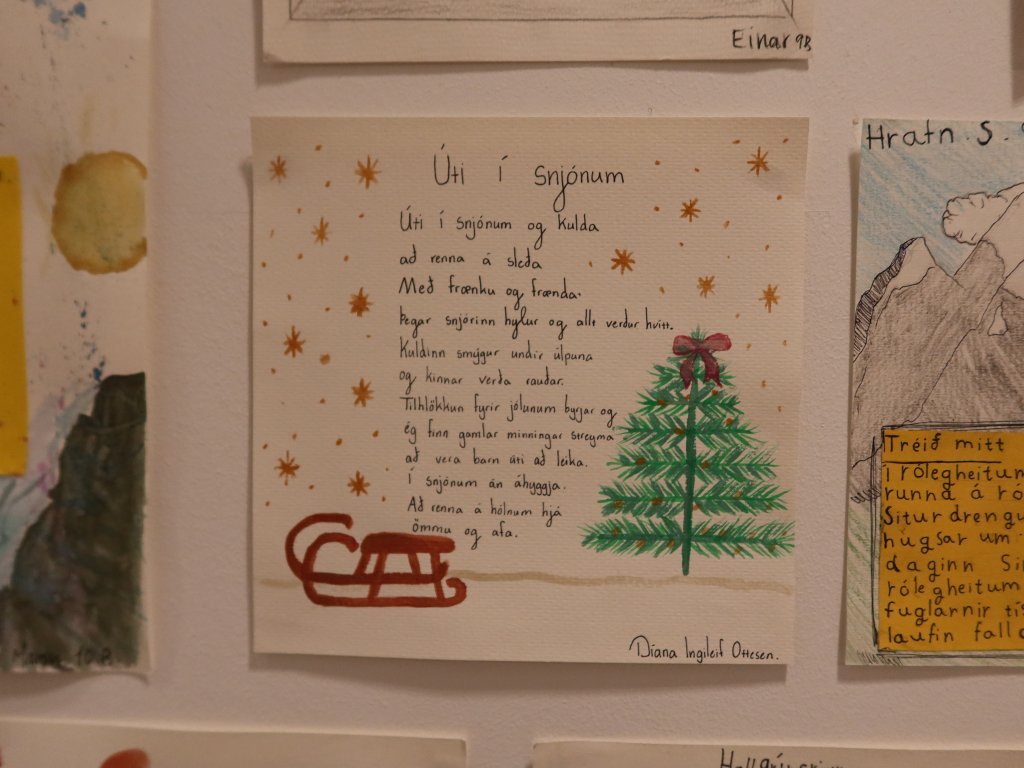 Einar 9B
Úti í snjónum
Úti í snjónum og kulda
að renna á sleða
Með frænku og frænda.
Þegar snjórinn hylur og allt verður hvítt.
Kuldinn smýgur undir úlpuna
og kinnar verða rauðar.
Tilhlökkun fyrir jólunum byrjar og
ég finn gamlar minningar streyma
að vera barn úti að leika.
Í snjónum án áhyggja.
Að renna á hólnum hjá
ömmu og afa.
Díana Ingileif Ottesen.
Hrafn S.
Tréið mitt
Í rólegheitum
runna á ró
Situr drengu
hugsar um
daginn Si
rólegheitum
fuglarnir tí
laufin falla
10.B